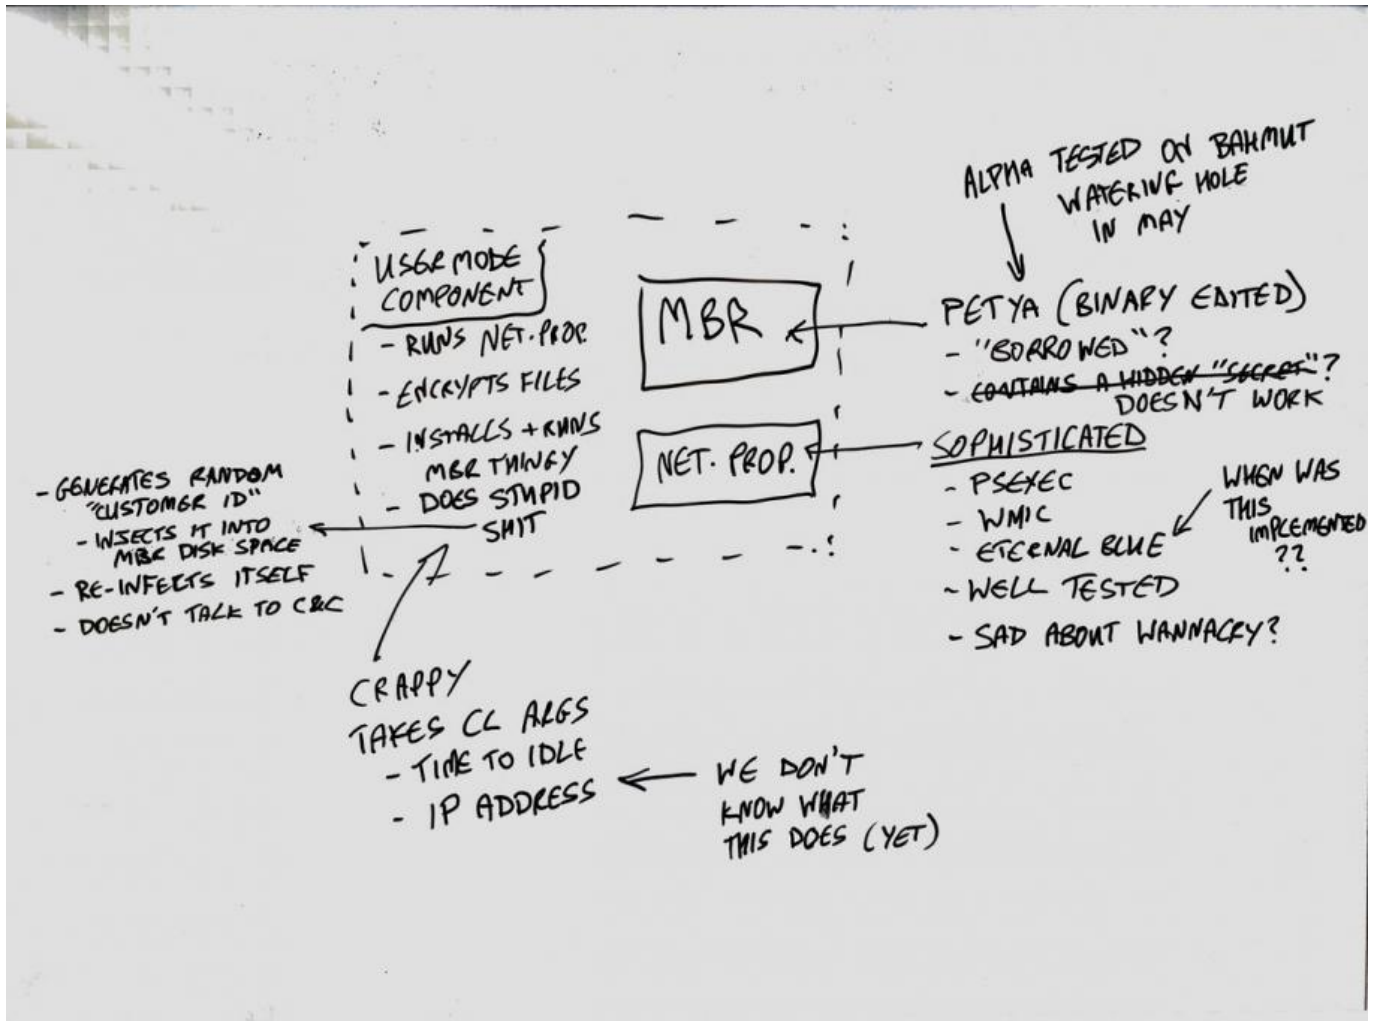 ALPHA TESTED ON BAHMUT
WATERING HOLE
IN MAY
USERMODE
COMPONENT
- RUNS NET. PROP.
- ENCRYPTS FILES
- INSTALLS + RUNS
MBR THINGY
- DOES STUPID
SHIT
MBR
NET. PROP.
PETYA (BINARY EDITED)
- "BORROWED"?
- CONTAINS A HIDDEN "SECRET"?
DOESN'T WORK
SOPHISTICATED
- PSEXEC
- WMIC
- ETERNAL BLUE
- WELL TESTED
- SAD ABOUT WANNACRY?
WHEN WAS
THIS
IMPLEMENTED
??
- GENERATES RANDOM
"CUSTOMER ID"
- INJECTS IT INTO
MBR DISK SPACE
- RE-INFECTS ITSELF
- DOESN'T TALK TO C&C
CRAPPY
TAKES CL ARGS
- TIME TO IDLE
- IP ADDRESS
WE DON'T
KNOW WHAT
THIS DOES (YET)